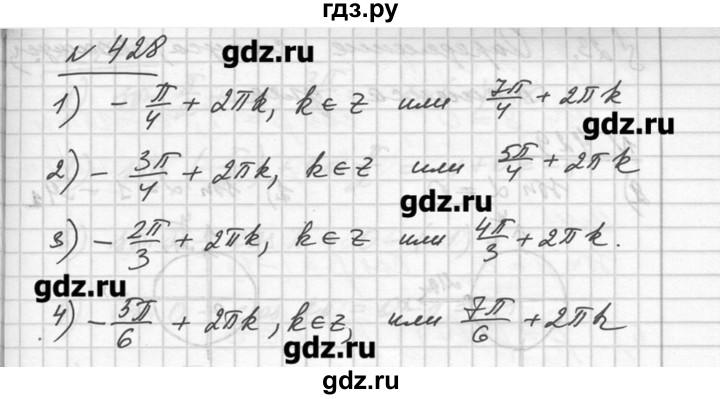 гдз.ру
№ 428
gdz.ru
1) - π/4 + 2πk, k∈Z или 7π/4 + 2πk
gdz.ru
2) - 3π/4 + 2πk, k∈Z или 5π/4 + 2πk
gdz.ru
3) - 2π/3 + 2πk, k∈Z или 4π/3 + 2πk.
gdz.ru
4) - 5π/6 + 2πk, k∈Z, или 7π/6 + 2πk
gdz.ru
gdz.ru